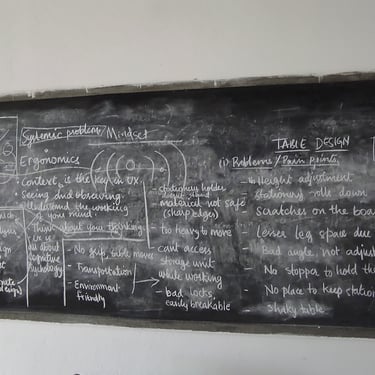 Systemic problem / Mindset
Ergonomics
Context is the key in UX.
Seeing and observing.
Understand the working
of your mind.
Think about you thinking.
UX is
all about
cognitive
psychology
- No grip, while move
- Transportation
- Environment
friendly
stationary holder
material not safe
(sharp edges)
too heavy to move
cant access
storage unit
while working
- bad locks,
easily breakable
TABLE DESIGN
(i) Problems / Pain points,
- Height adjustment
Stationery rolls down
- Scratches on the boa
- Lesser leg space due
- Bad angle, not adjust
- No stopper to hold th
- No place to keep station
- Shaky table